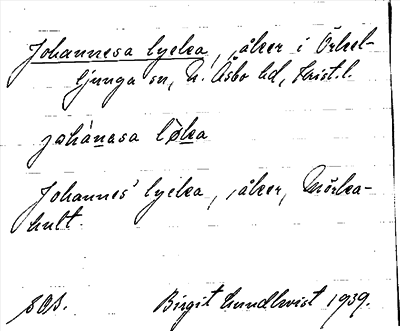 Johannesa lycka, åker i Örkel-
ljunga sn, N. Åsbo hd, Krist. l.
johànasa løka
Johannes' lycka, åker, Mörka-
hult.
SOA. Birgit Lundkvist 1939.